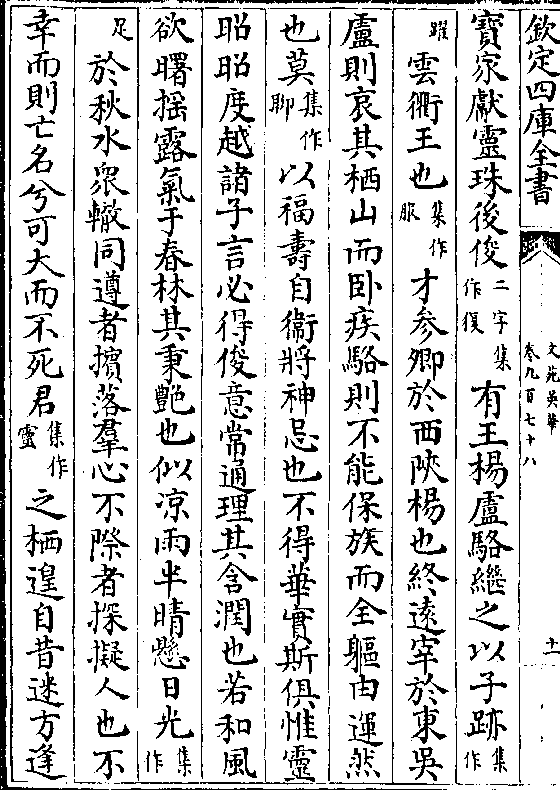 欽定四庫全書
文苑英華
卷九百七十八
十一
寳家獻靈珠後俊二字集作復有王楊盧駱繼之以子跡集作
躍雲衢王也集作服才参卿於西陜楊也終逺宰於東吳
盧則哀其栖山而卧疾駱則不能保族而全軀由運然
也莫集作聊以福壽自衞將神忌也不得華實斯俱惟靈
昭昭度越諸子言必得俊意常通理其含潤也若和風
欲曙揺露氣于春林其秉艶也似凉雨半晴懸日光集作
足於秋水衆轍同遵者擯落羣心不際者探擬人也不
幸而則亡名兮可大而不死君集作靈之栖遑自昔迷方逢